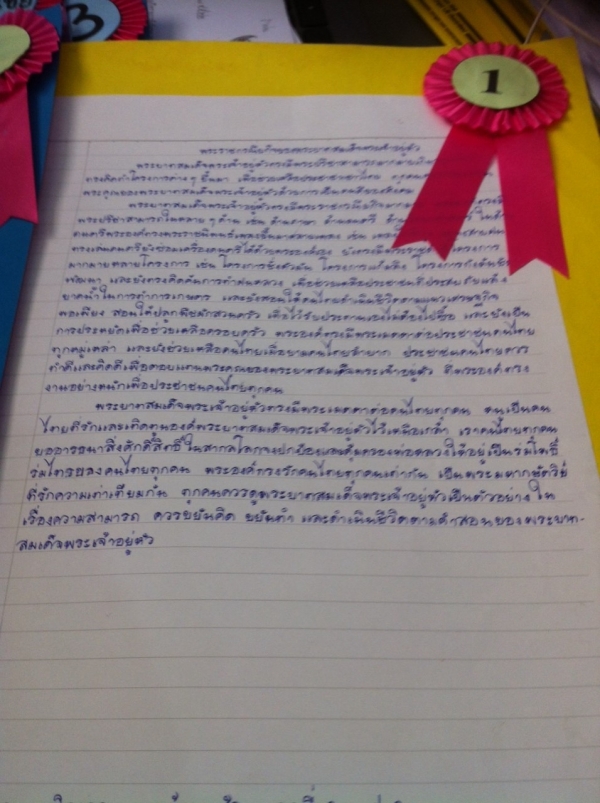 พระราชกรณียกิจของพระบาทสมเด็จพระเจ้าอยู่หัว
พระบาทสมเด็จพระเจ้าอยู่หัวทรงมีพระปรีชาสามารถมากมาย
ทรงคิดทำโครงการต่างๆ ขึ้นมา เพื่อช่วยเหลือประชาชนชาวไทย
พระคุณของพระบาทสมเด็จพระเจ้าอยู่หัวด้วยการเป็นคนดีของสังคม
พระบาทสมเด็จพระเจ้าอยู่หัวทรงมีพระราชกรณียกิจมากมาย
พระปรีชาสามารถในหลายๆ ด้าน เช่น ด้านภาษา ด้านดนตรี
ดนตรีพระองค์ทรงพระราชนิพนธ์เพลงขึ้นมาหลายเพลง เช่น
ทรงเล่นดนตรียังซ่อมเครื่องดนตรีได้ด้วยพระองค์เอง ยังทรงมีพระราชดำริ โครงการ
มากมายหลายโครงการ เช่น โครงการชั่งหัวมัน โครงการแก้มลิง โครงการกังหันชัย
พัฒนา และยังทรงคิดค้นการทำฝนหลวง เพื่อช่วยเหลือประชาชนที่ประสบภัยแล้ง
ขาดน้ำในการทำการเกษตร และยังสอนให้คนไทยดำเนินชีวิตตามแนวเศรษฐกิจ
พอเพียง สอนให้ปลูกพืชผักสวนครัว เพื่อไว้รับประทานเองไม่ต้องไปซื้อ และยังเป็น
การประหยัดเพื่อช่วยเหลือครอบครัว พระองค์ทรงมีพระเมตตาต่อประชาชนคนไทย
ทุกหมู่เหล่า และยังช่วยเหลือคนไทยเมื่อยามคนไทยลำบาก ประชาชนคนไทยควร
ทำดีและคิดดีเพื่อตอบแทนพระคุณของพระบาทสมเด็จพระเจ้าอยู่หัว ที่พระองค์ทรง
งานอย่างหนักเพื่อประชาชนคนไทยทุกคน
พระบาทสมเด็จพระเจ้าอยู่หัวทรงมีพระเมตตาต่อคนไทยทุกคน จนเป็นคน
ไทยที่รักและเทิดทูนองค์พระบาทสมเด็จพระเจ้าอยู่หัวไว้เหนือเกล้า เราคนไทยทุกคน
ขออาราธนาสิ่งศักดิ์สิทธิ์ในสากลโลกจงปกป้องและคุ้มครองพ่อหลวงให้อยู่เป็นร่มโพธิ์
ร่มไทรของคนไทยทุกคน พระองค์ทรงรักคนไทยทุกคนเท่ากัน เป็นพระมหากษัตริย์
ที่รักความเท่าเทียมกัน ทุกคนควรดูพระบาทสมเด็จพระเจ้าอยู่หัวเป็นตัวอย่างใน
เรื่องความสามารถ ควรขยันคิด ขยันทำ และดำเนินชีวิตตามคำสอนของพระบาท-
สมเด็จพระเจ้าอยู่หัว
1
3